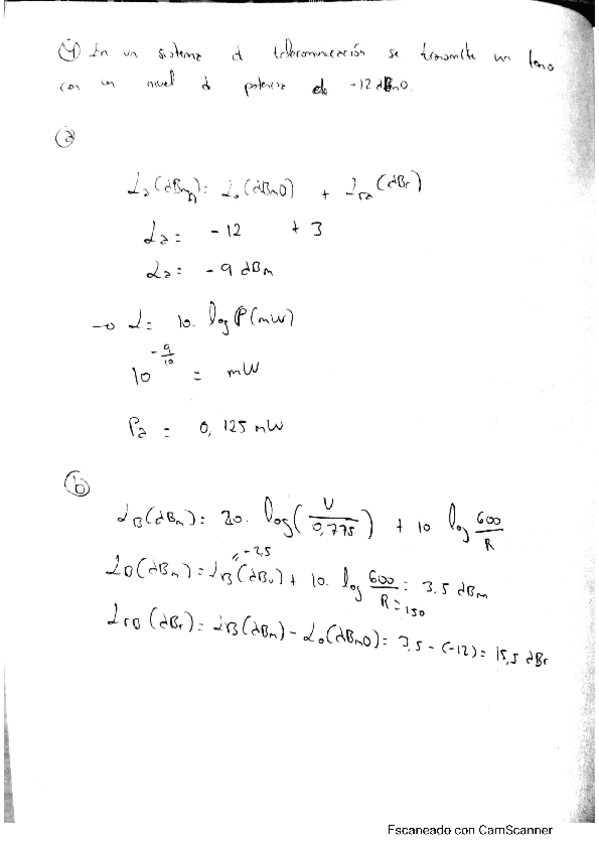 ④ En un sistema d telecomunicación se transmite un tono
con un nivel d potencia de -12 dBm0.
ⓐ
La (dBm) = Lo (dBm0) + Lra (dBr)
La = -12 + 3
La = -9 dBm
→ L = 10. log P(mW)
10^(-9/10) = mW
Pa = 0,125 mW
ⓑ
LB (dBm) = 20. log (U/0,775) + 10 log 600/R
= -2,5
LB (dBm) = LB (dBu) + 10. log 600/R=150 = 3,5 dBm
LrB (dBr) = LB (dBm) - Lo (dBm0) = 3,5 - (-12) = 15,5 dBr
Escaneado con CamScanner